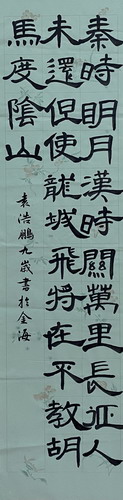 秦時明月漢時關萬里長征人
未還但使龍城飛將在不教胡
馬度陰山
袁浩鵬九歲書於金海